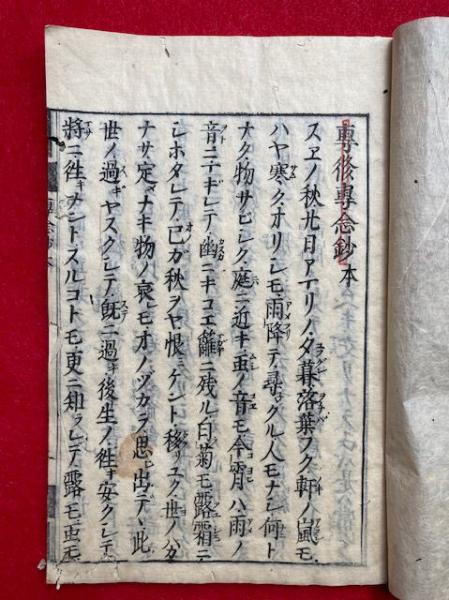 專修專念鈔 本
スヱノ秋九日アマリノ夕暮落葉フク軒ノ嵐モ
ハヤ寒クオリシモ雨降テ尋クル人モナシ何ト
ナク物サビシク庭ニ近キ虫ノ音モ今宵ハ雨ノ
音ニテギレテ幽ニキコエ籬ニ残ル白菊モ露霜ニ
シホタレテ己ガ秋ヲヤ恨ミケント移リユク世ノハカ
ナサ定メナキ物ノ哀レモオノヅカラ思ヒ出デヽ此
世ノ過ギヤスクシテ既ニ過キ後生ノ徃キ安クシテ
將ニ徃キナントスルコトモ更ニ知ラレテ露モ虫モ